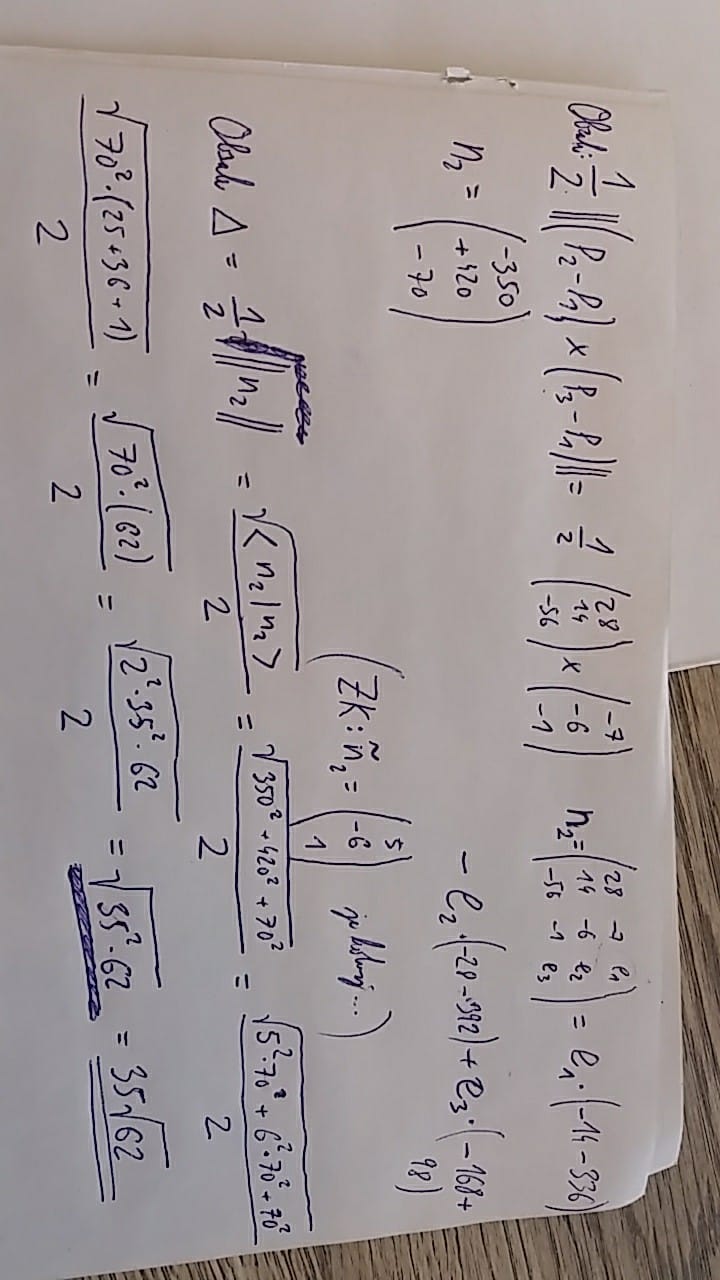 Obsah: 1/2 ||(P₂-P₁) × (P₃-P₁)|| = 1/2 (28 14 -56) × (-7 -6 -1) n₂ = (28 -7 e₁ 14 -6 e₂ -56 -1 e₃) = e₁·(-14-336)
- e₂·(-28-392) + e₃·(-168+98)
n₂ = (-350 +420 -70)
(ZK: ñ₂ = (5 -6 1) je kolmý...)
Obsah Δ = 1/2 ||n₂|| = √<n₂|n₂>/2 = √350²+420²+70²/2 = √5²·70²+6²·70²+70²/2
√70²·(25+36+1)/2 = √70²·(62)/2 = √2²·35²·62/2 = √35²·62 = 35√62